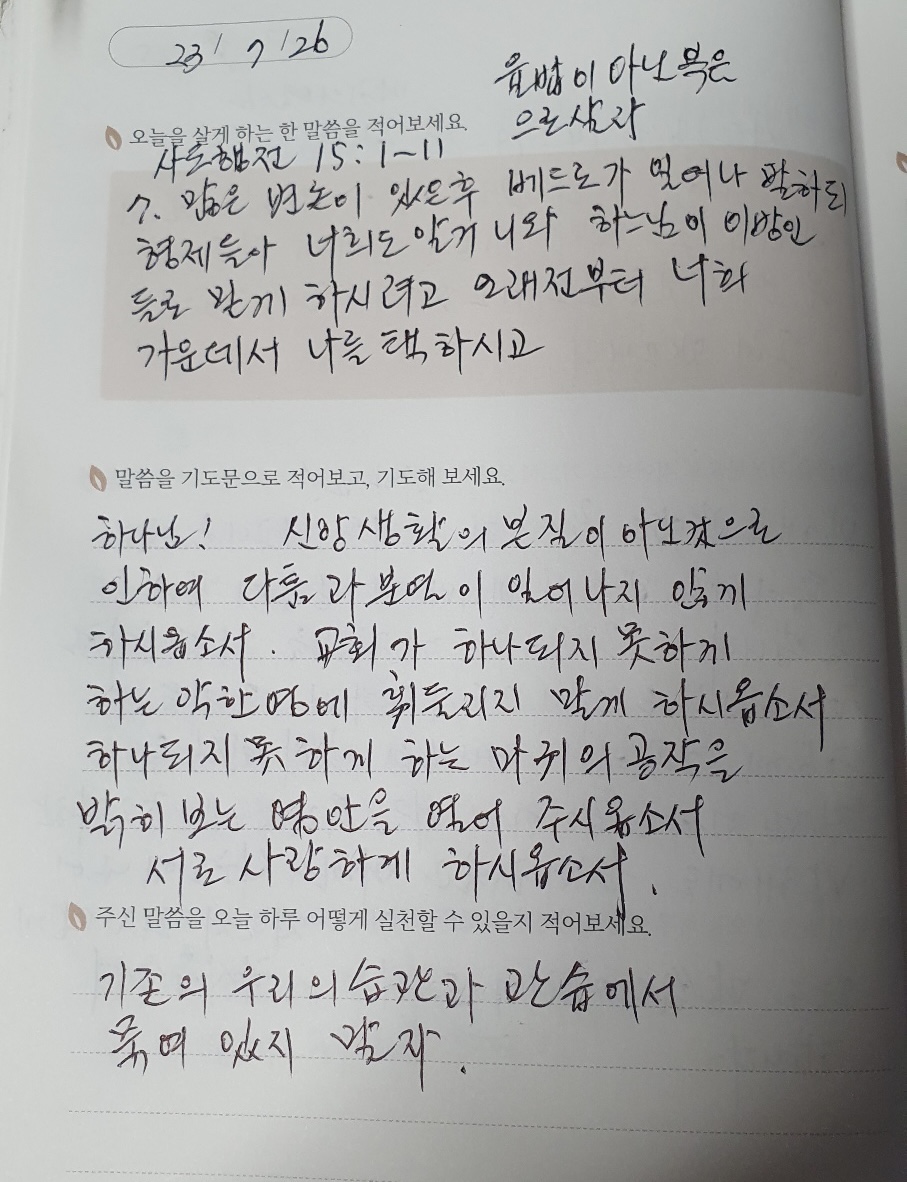 23 / 7 / 26
율법이 아닌 복음
으로 살자
오늘을 살게 하는 한 말씀을 적어보세요.
사도행전 15:1~11
7. 많은 변론이 있은후 베드로가 일어나 말하되
형제들아 너희도 알거니와 하느님이 이방인
들로 하시려고 오래전부터 너희
가운데서 나를 택하시고
말씀을 기도문으로 적어보고, 기도해 보세요.
하나님! 신앙생활의 본질이 아닌것으로
인하여 다툼과 분열이 일어나지 않게
하시옵소서. 교회가 하나되지 못하게
하는 악한영에 휘둘리지 말게 하시옵소서
하나되지 못하게 하는 마귀의 공작을
밝히 보는 영안을 열어 주시옵소서
서로 사랑하게 하시옵소서.
주신 말씀을 오늘 하루 어떻게 실천할 수 있을지 적어보세요.
기존의 우리의 습관과 관습에서
묶여 있지 말자.